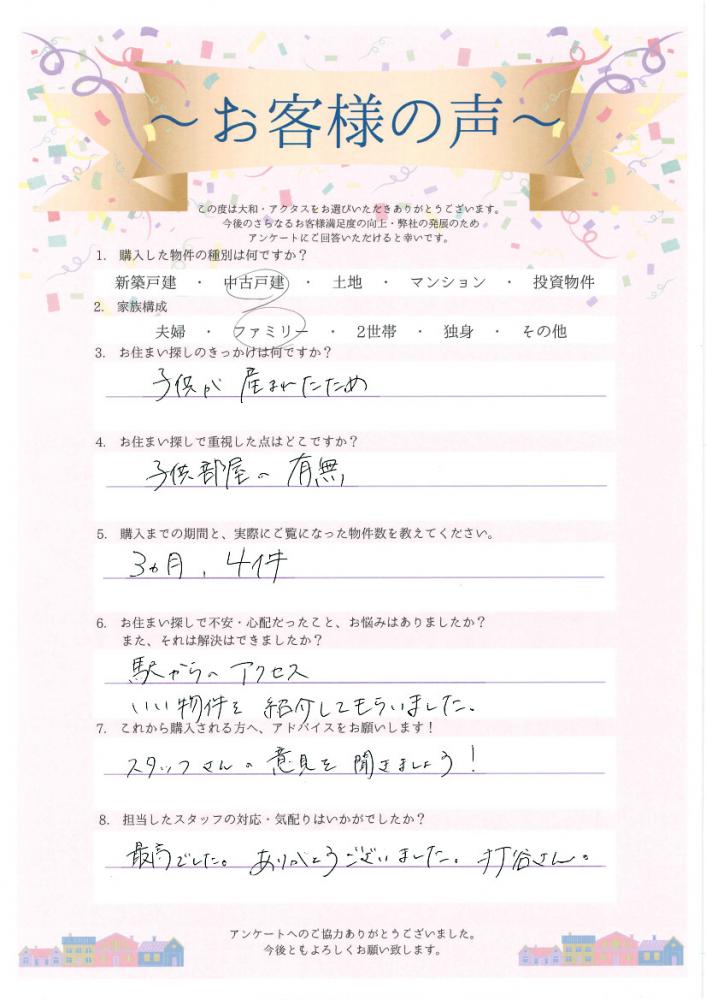 ～お客様の声～
この度は大和・アクタスをお選びいただきありがとうございます。
今後のさらなるお客様満足度の向上・弊社の発展のため
アンケートにご回答いただけると幸いです。
1. 購入した物件の種別は何ですか？
新築戸建 ・ 中古戸建 ・ 土地 ・ マンション ・ 投資物件
2. 家族構成
夫婦 ・ ファミリー ・ 2世帯 ・ 独身 ・ その他
3. お住まい探しのきっかけは何ですか？
子供が産まれたため
4. お住まい探しで重視した点はどこですか？
子供部屋の有無
5. 購入までの期間と、実際にご覧になった物件数を教えてください。
3ヵ月、4件
6. お住まい探しで不安・心配だったこと、お悩みはありましたか？
また、それは解決はできましたか？
駅からのアクセス
いい物件を紹介してもらいました。
7. これから購入される方へ、アドバイスをお願いします！
スタッフさんの意見を聞きましょう！
8. 担当したスタッフの対応・気配りはいかがでしたか？
最高でした。ありがとうございました。打谷さん。
アンケートへのご協力ありがとうございました。
今後ともよろしくお願い致します。